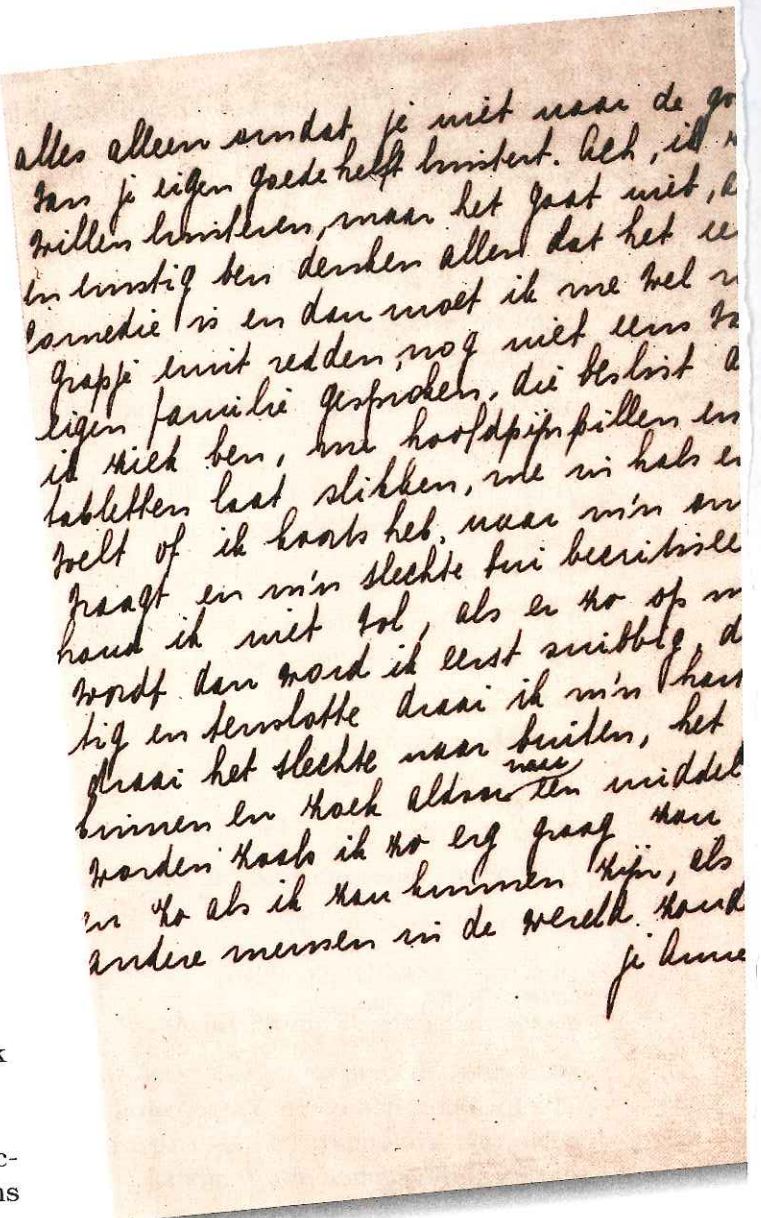 alles alleen omdat je niet naar de go
van je eigen goede helft luistert. Ach, ik
willen luisteren, maar het gaat niet, a
en ernstig ben denken allen dat het ee
comedie is en dan moet ik me wel
grapje eruit redden, nog niet eens va
eigen familie gesproken, die beslist d
ik ziek ben, me hoofdpijnpillen en
tabletten laat slikken, me in hals e
voelt of ik koorts heb, naar m'n on
vraagt en m'n slechte bui becritisee
houd ik niet vol, als er zo op m
wordt dan word ik eerst snibbig, d
tig en tenslotte draai ik m'n har
draai het slechte naar buiten, het
binnen en zoek aldoor naar een middel
worden zoals ik zo erg graag zou
en zo als ik zou kunnen zijn, als
andere mensen in de wereld zoud
je Anne
k
c-
ns